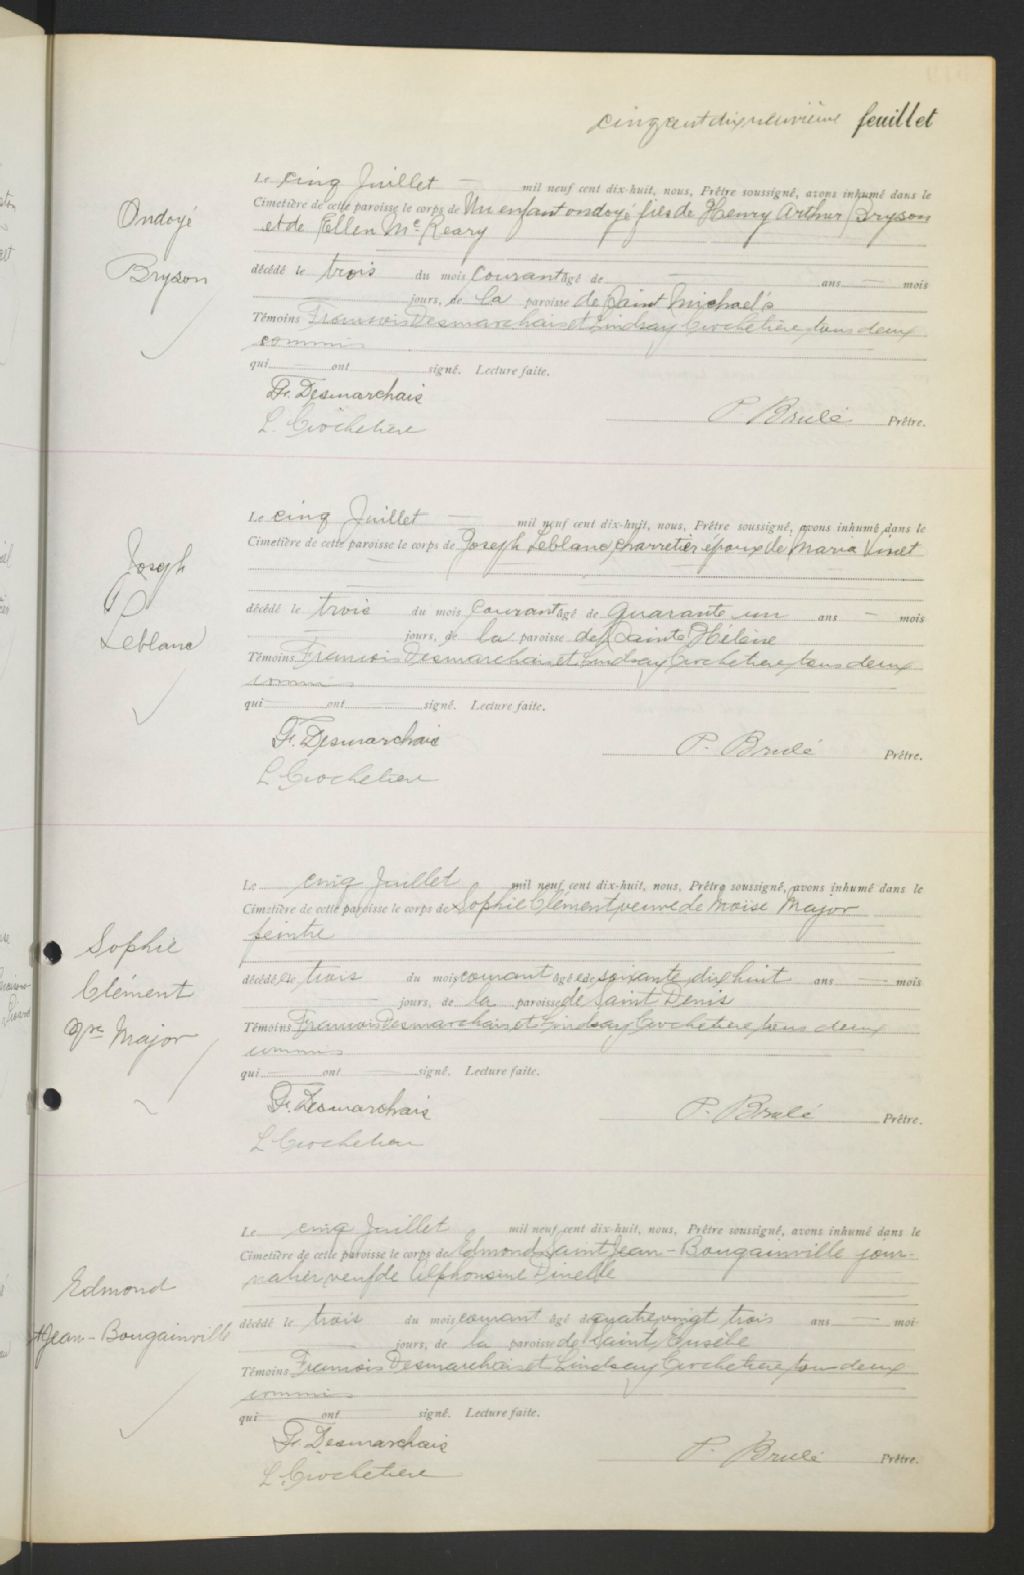 cinq cent dix neuvième feuillet
Ondoyé
Bryson
Le cinq Juillet — mil neuf cent dix-huit, nous, Prêtre soussigné, avons inhumé dans le
Cimetière de cette paroisse le corps de Un enfant ondoyé fils de Henry Arthur Bryson
et de Ellen Mc Keary
décédé le trois du mois courant âgé de — ans — mois
jours, de la paroisse de Saint Michael's
Témoins Francois Desmarchais et Lindsay Crochetière tous deux
commis
qui ont signé. Lecture faite.
Fr. Desmarchais
L. Crochetiere
P. Brulé Prêtre.
Joseph
Leblanc
Le cinq Juillet — mil neuf cent dix-huit, nous, Prêtre soussigné, avons inhumé dans le
Cimetière de cette paroisse le corps de Joseph Leblanc, charretier époux de Maria Vinet
décédé le trois du mois courant âgé de quarante un ans — mois
jours, de la paroisse de Sainte Hélène
Témoins Francois Desmarchais et Lindsay Crochetiere tous deux
commis
qui ont signé. Lecture faite.
F. Desmarchais
L Crochetiere
P. Brulé Prêtre.
Sophie
Clément
Vve Major
Le cinq Juillet mil neuf cent dix-huit, nous, Prêtre soussigné, avons inhumé dans le
Cimetière de cette paroisse le corps de Sophie Clément veuve de Moïse Major
peintre
décédée le trois du mois courant âgée de soixante dix huit ans — mois
jours, de la paroisse de Saint Denis
Témoins Francois Desmarchais et Lindsay Crochetiere tous deux
commis
qui ont signé. Lecture faite.
F. Desmarchais
L Crochetiere
P. Brulé Prêtre.
Edmond
St Jean-Bougainville
Le cinq Juillet mil neuf cent dix-huit, nous, Prêtre soussigné, avons inhumé dans le
Cimetière de cette paroisse le corps de Edmond Saint Jean-Bougainville jour-
nalier, veuf de Alphonsine Dinelle
décédé le trois du mois courant âgé de quatre vingt trois ans — moi
jours, de la paroisse de Saint Eusèbe
Témoins Francois Desmarchais et Lindsay Crochetiere tous deux
commis
qui ont signé. Lecture faite.
F. Desmarchais
L. Crochetiere
P. Brulé Prêtre.